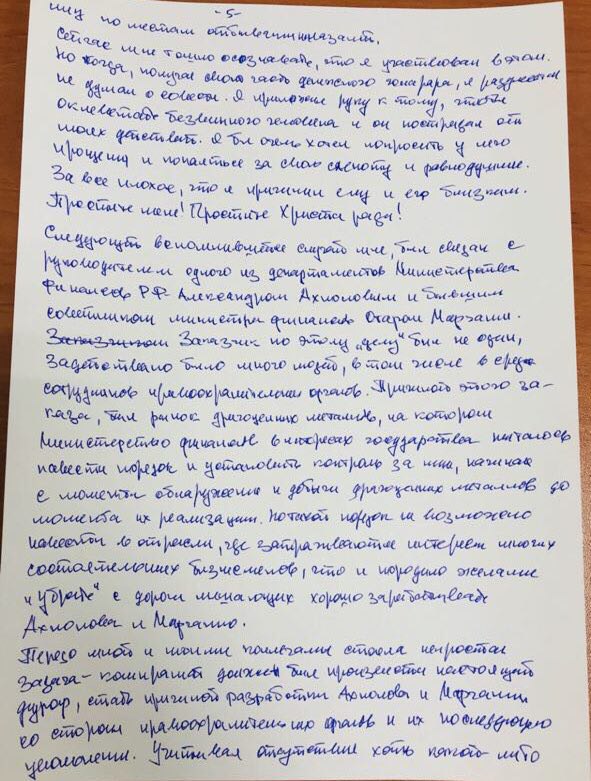 - 5 -
ниц по местам отбывания наказания.
Сейчас мне тошно осознавать, что я участвовал в этом.
Но тогда, получая свою часть денежного гонорара, я разумеется
не думал о совести. Я приложил руку к тому, чтобы
оклеветать безвинного человека и он пострадал от
моих действий. Я бы очень хотел попросить у него
прощения и покаяться за свою слепоту и равнодушие.
За все плохое, что я причинил ему и его близким.
Простите меня! Простите Христа ради!
Следующий вспомнившийся случай мне, был связан с
руководителем одного из департаментов Министерства
финансов РФ Александром Ахполовым и бывшим
советником министра финансов Отаром Маргания.
Заказчик по этому "делу" был не один,
задействовано было много людей, в том числе в среде
сотрудников правоохранительных органов. Причиной этого за-
каза, был рынок драгоценных металлов, на котором
Министерство финансов в интересах государства пыталось
навести порядок и установить контроль за ним, начиная
с момента обнаружения и добычи драгоценных металлов до
момента их реализации. Но такой порядок не возможно
навести в отрасли, где затрагиваются интересы многих
состоятельных бизнесменов, что и породило желание
"убрать" с дороги мешающих хорошо зарабатывать
Ахполова и Маргания.
Передо мной и моими коллегами стояла непростая
задача - компромат должен был произвести настоящий
фурор, стать причиной разработки Ахполова и Маргания
со стороны правоохранительных органов и их последующего
увольнения. Учитывая отсутствие хоть какого-либо